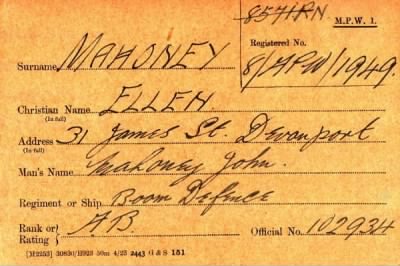 8571RN
M.P.W. 1.
Surname MAHONEY
Registered No.
8/MPW/1949.
Christian Name ELLEN
(In full)
Address 31 James St. Devonport
(In full)
Man's Name Mahoney John.
Regiment or Ship Boom Defence
Rank or Rating } AB. Official No. 102934
[M2253] 30830/H923 50m 4/25 2443 G & S 151